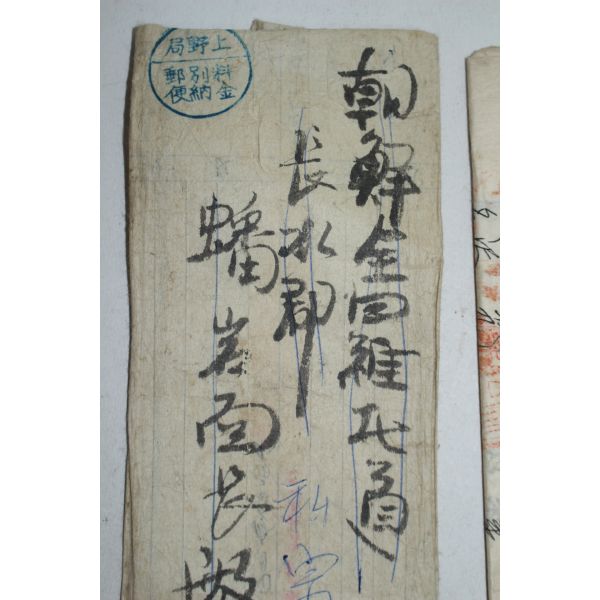 朝鮮全囘羅北道
長水郡
蟠岩面長殿
上野局
料金
別納
郵便